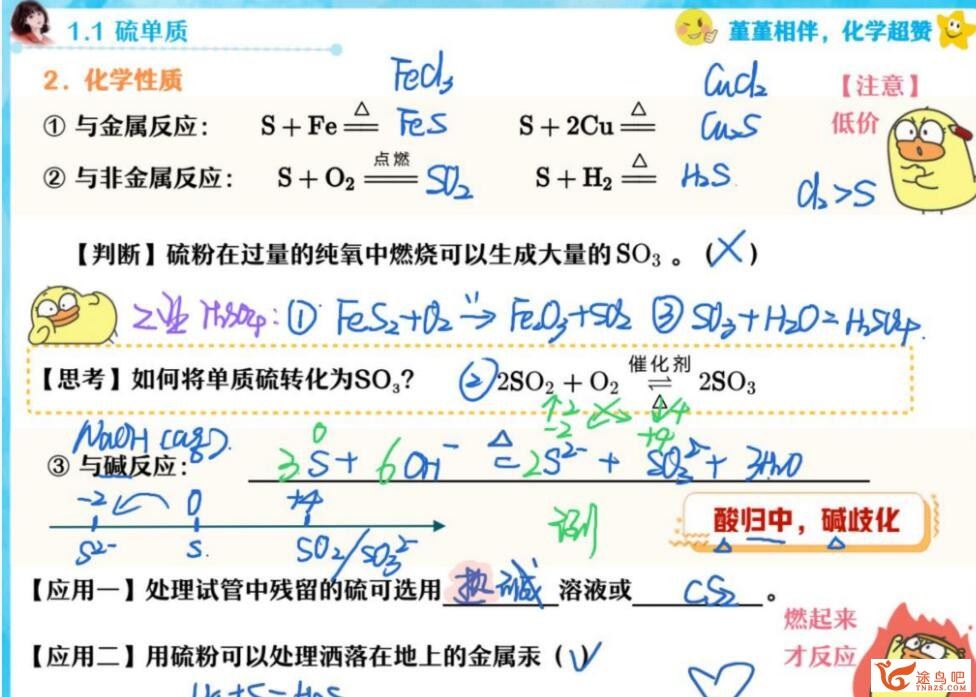 1.1 硫单质
堇堇相伴，化学超赞
2. 化学性质 FeCl₃ CuCl₂ 【注意】
① 与金属反应： S + Fe △ FeS S + 2Cu △ Cu₂S 低价
② 与非金属反应： S + O₂ 点燃 SO₂ S + H₂ △ H₂S Cl₂>S
【判断】硫粉在过量的纯氧中燃烧可以生成大量的SO₃ 。（×）
工业 H₂SO₄: ① FeS₂+O₂ → Fe₂O₃+SO₂ ③ SO₃+H₂O=H₂SO₄.
【思考】如何将单质硫转化为SO₃? ② 2SO₂ + O₂ 催化剂 ⇌ △ 2SO₃
NaOH (aq). 0 ↑2 -2 ↓4 +4
③ 与碱反应： 3S + 6OH⁻ △ = 2S²⁻ + SO₃²⁻ + 3H₂O
-2 0 +4
S²⁻ S. SO₂/SO₃²⁻
酸归中，碱歧化
【应用一】处理试管中残留的硫可选用 热碱 溶液或 CS₂ 。
燃起来
才反应
【应用二】用硫粉可以处理洒落在地上的金属汞（√）
Hg+S=HgS
途鸟吧
TNBZS.COM